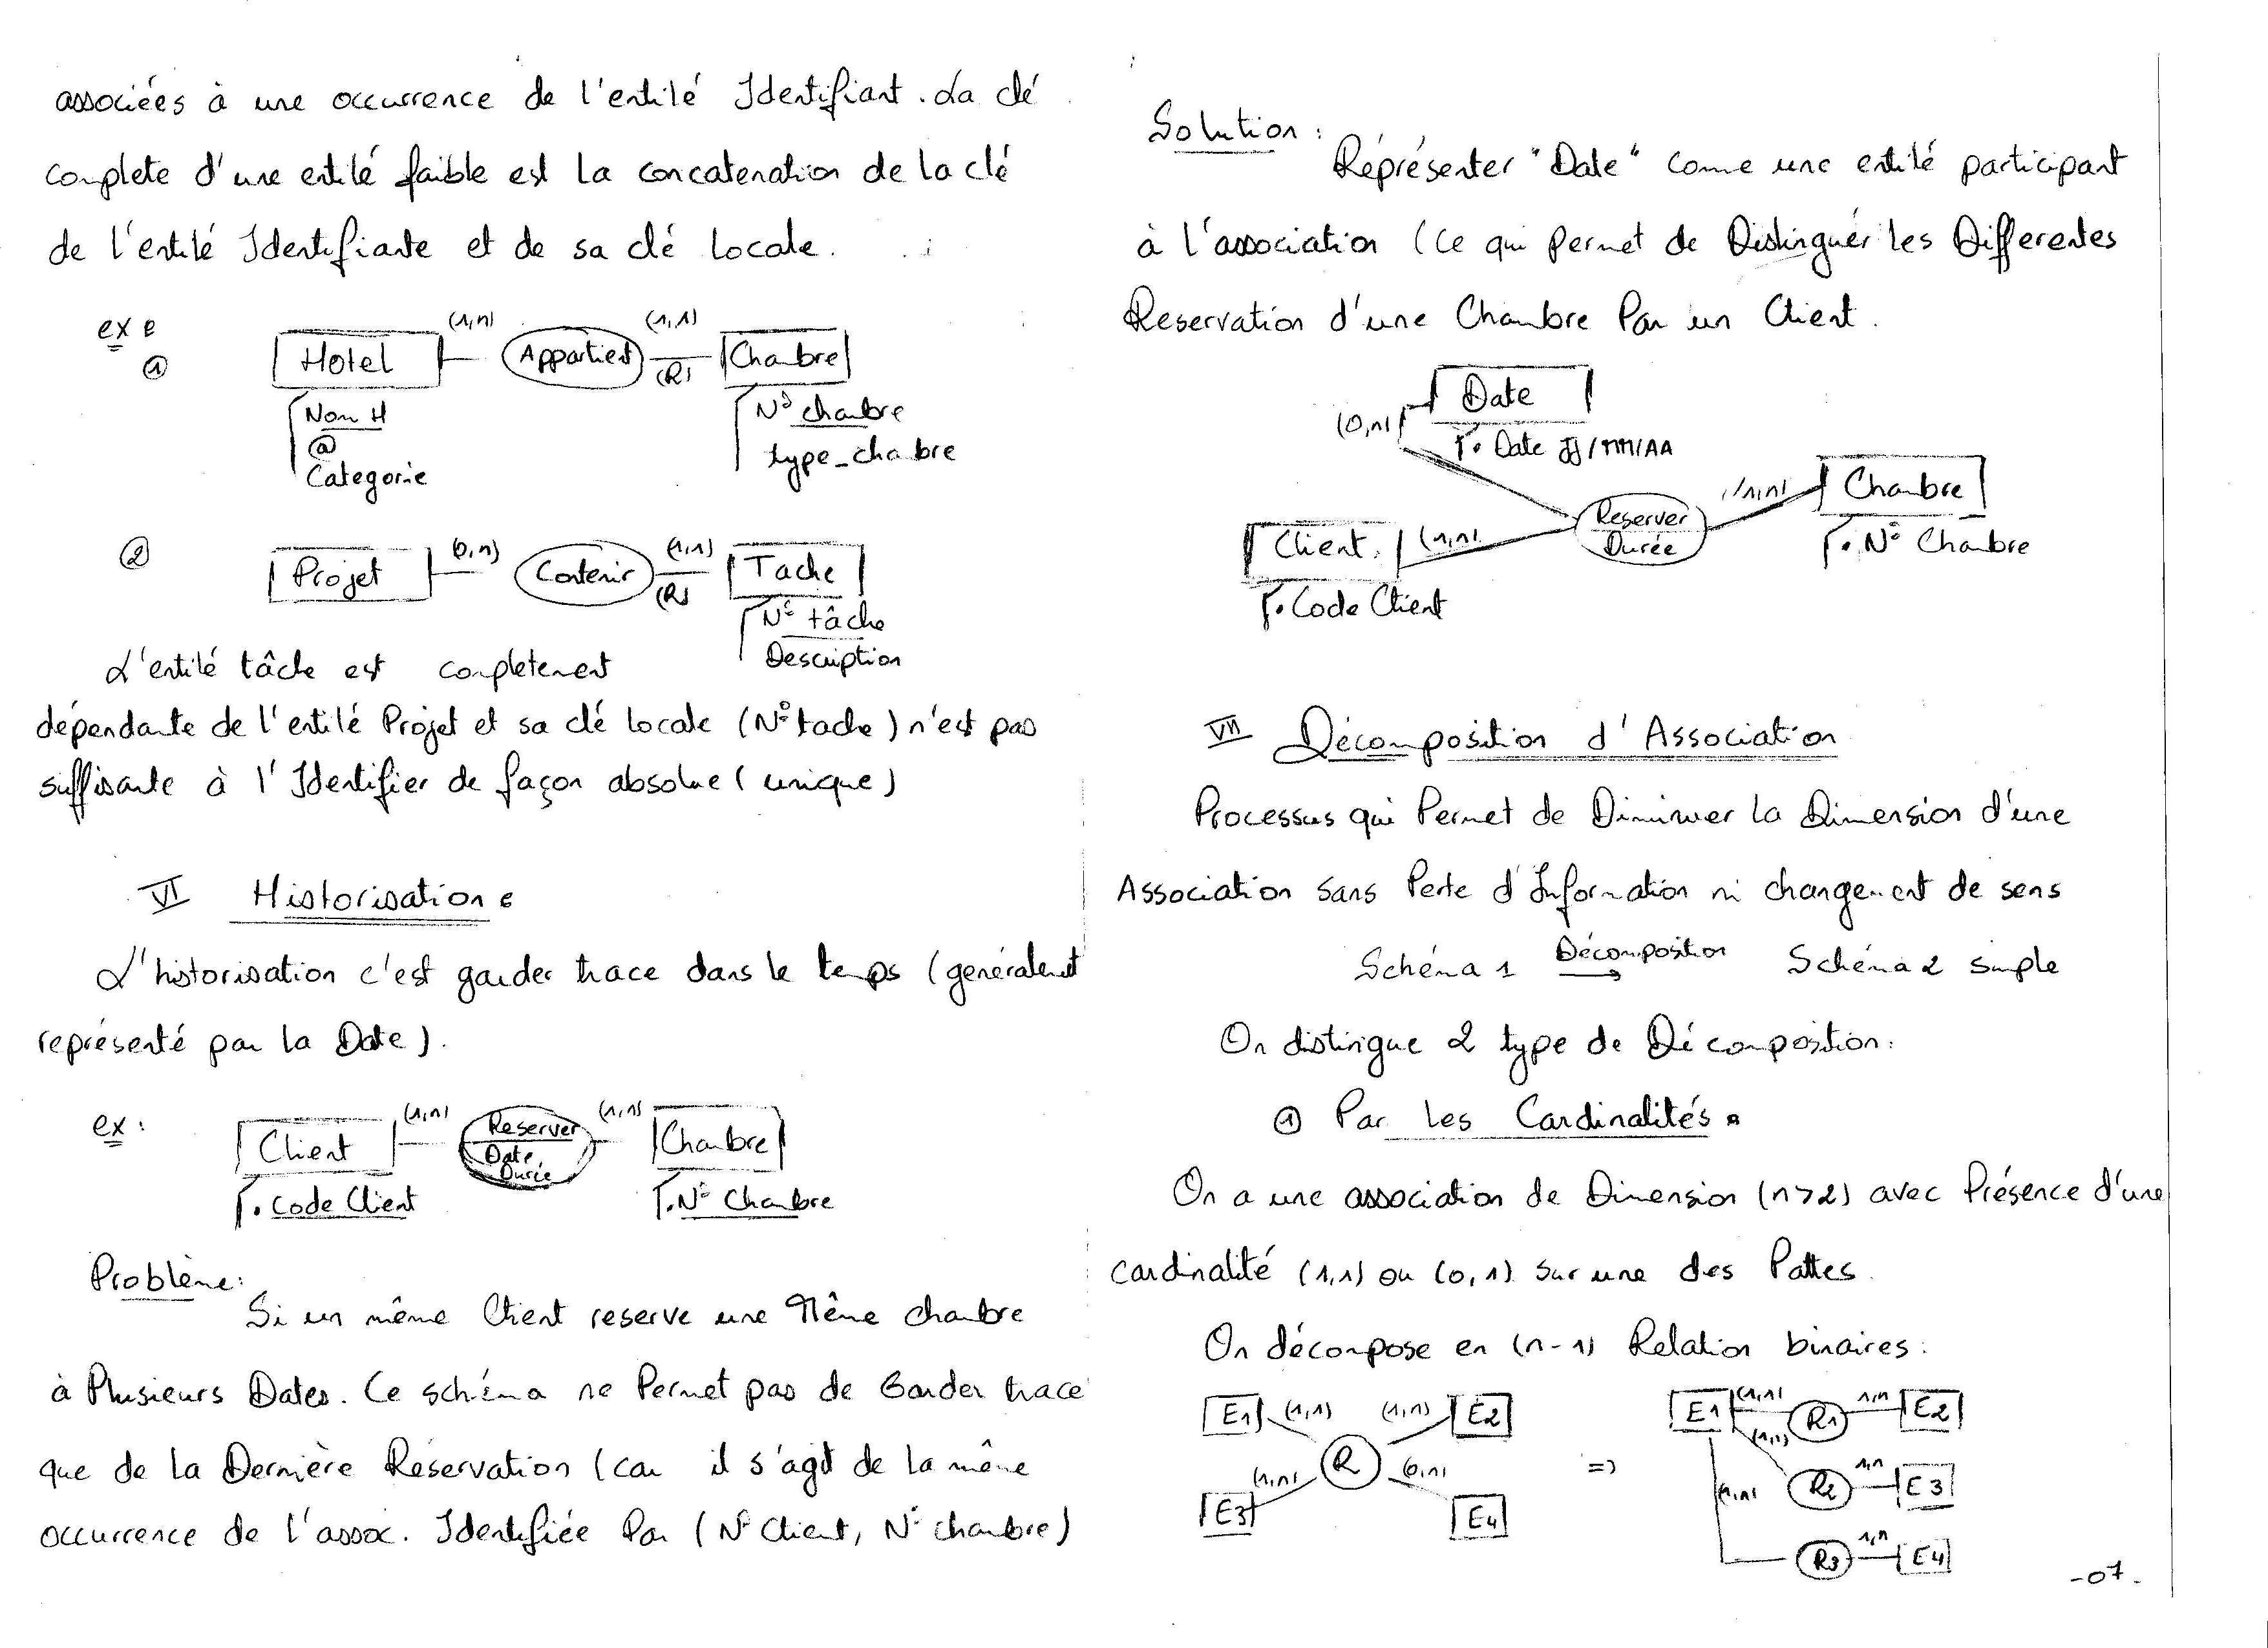 associées à une occurrence de l'entité Identifiant. La clé
complete d'une entité faible est la concatenation de la clé
de l'entité Identifiante et de sa clé locale.
ex :
①
Hotel (1,n) Appartient (1,1) (R) Chambre
Nom H
@
Categorie
N° chambre
type_chambre
②
Projet (0,n) Contenir (1,1) (R) Tache
N° tâche
Description
L'entité tâche est completement
dépendante de l'entité Projet et sa clé locale (N° tache) n'est pas
suffisante à l'Identifier de façon absolue (unique)
VI Historisation :
L'historisation c'est garder trace dans le temps (généralement
représenté par la Date).
ex :
Client (1,n) Reserver (1,n) Chambre
Date
Durée
• Code Client
• N° Chambre
Problème :
Si un même Client reserve une Même chambre
à Plusieurs Dates. Ce schéma ne Permet pas de Garder trace
que de la Dernière Réservation (car il s'agit de la même
occurrence de l'assoc. Identifiée Par (N° Client, N° chambre)
Solution :
Réprésenter "Date" come une entité participant
à l'association (Ce qui Permet de Distinguer les Differentes
Reservation d'une Chambre Par un Client.
Date
(0,n)
• Date JJ/MM/AA
Chambre
(1,n)
Reserver
Durée
Client (1,n)
• N° Chambre
• Code Client
VII Décomposition d'Association
Processus qui Permet de Diminuer la Dimension d'une
Association Sans Perte d'Information ni changement de sens
Schéma 1 Décomposition → Schéma 2 simple
On distingue 2 type de Décomposition :
① Par les Cardinalités :
On a une association de Dimension (n>2) avec Présence d'une
cardinalité (1,1) ou (0,1) Sur une des Pattes.
On décompose en (n-1) Relation binaires :
E1 (1,1) (1,n) E2
R
E3 (1,n) (0,n) E4
=>
E1 (1,1) R1 1,n E2
(1,1) R2 1,n E3
R3 1,n E4
-07-